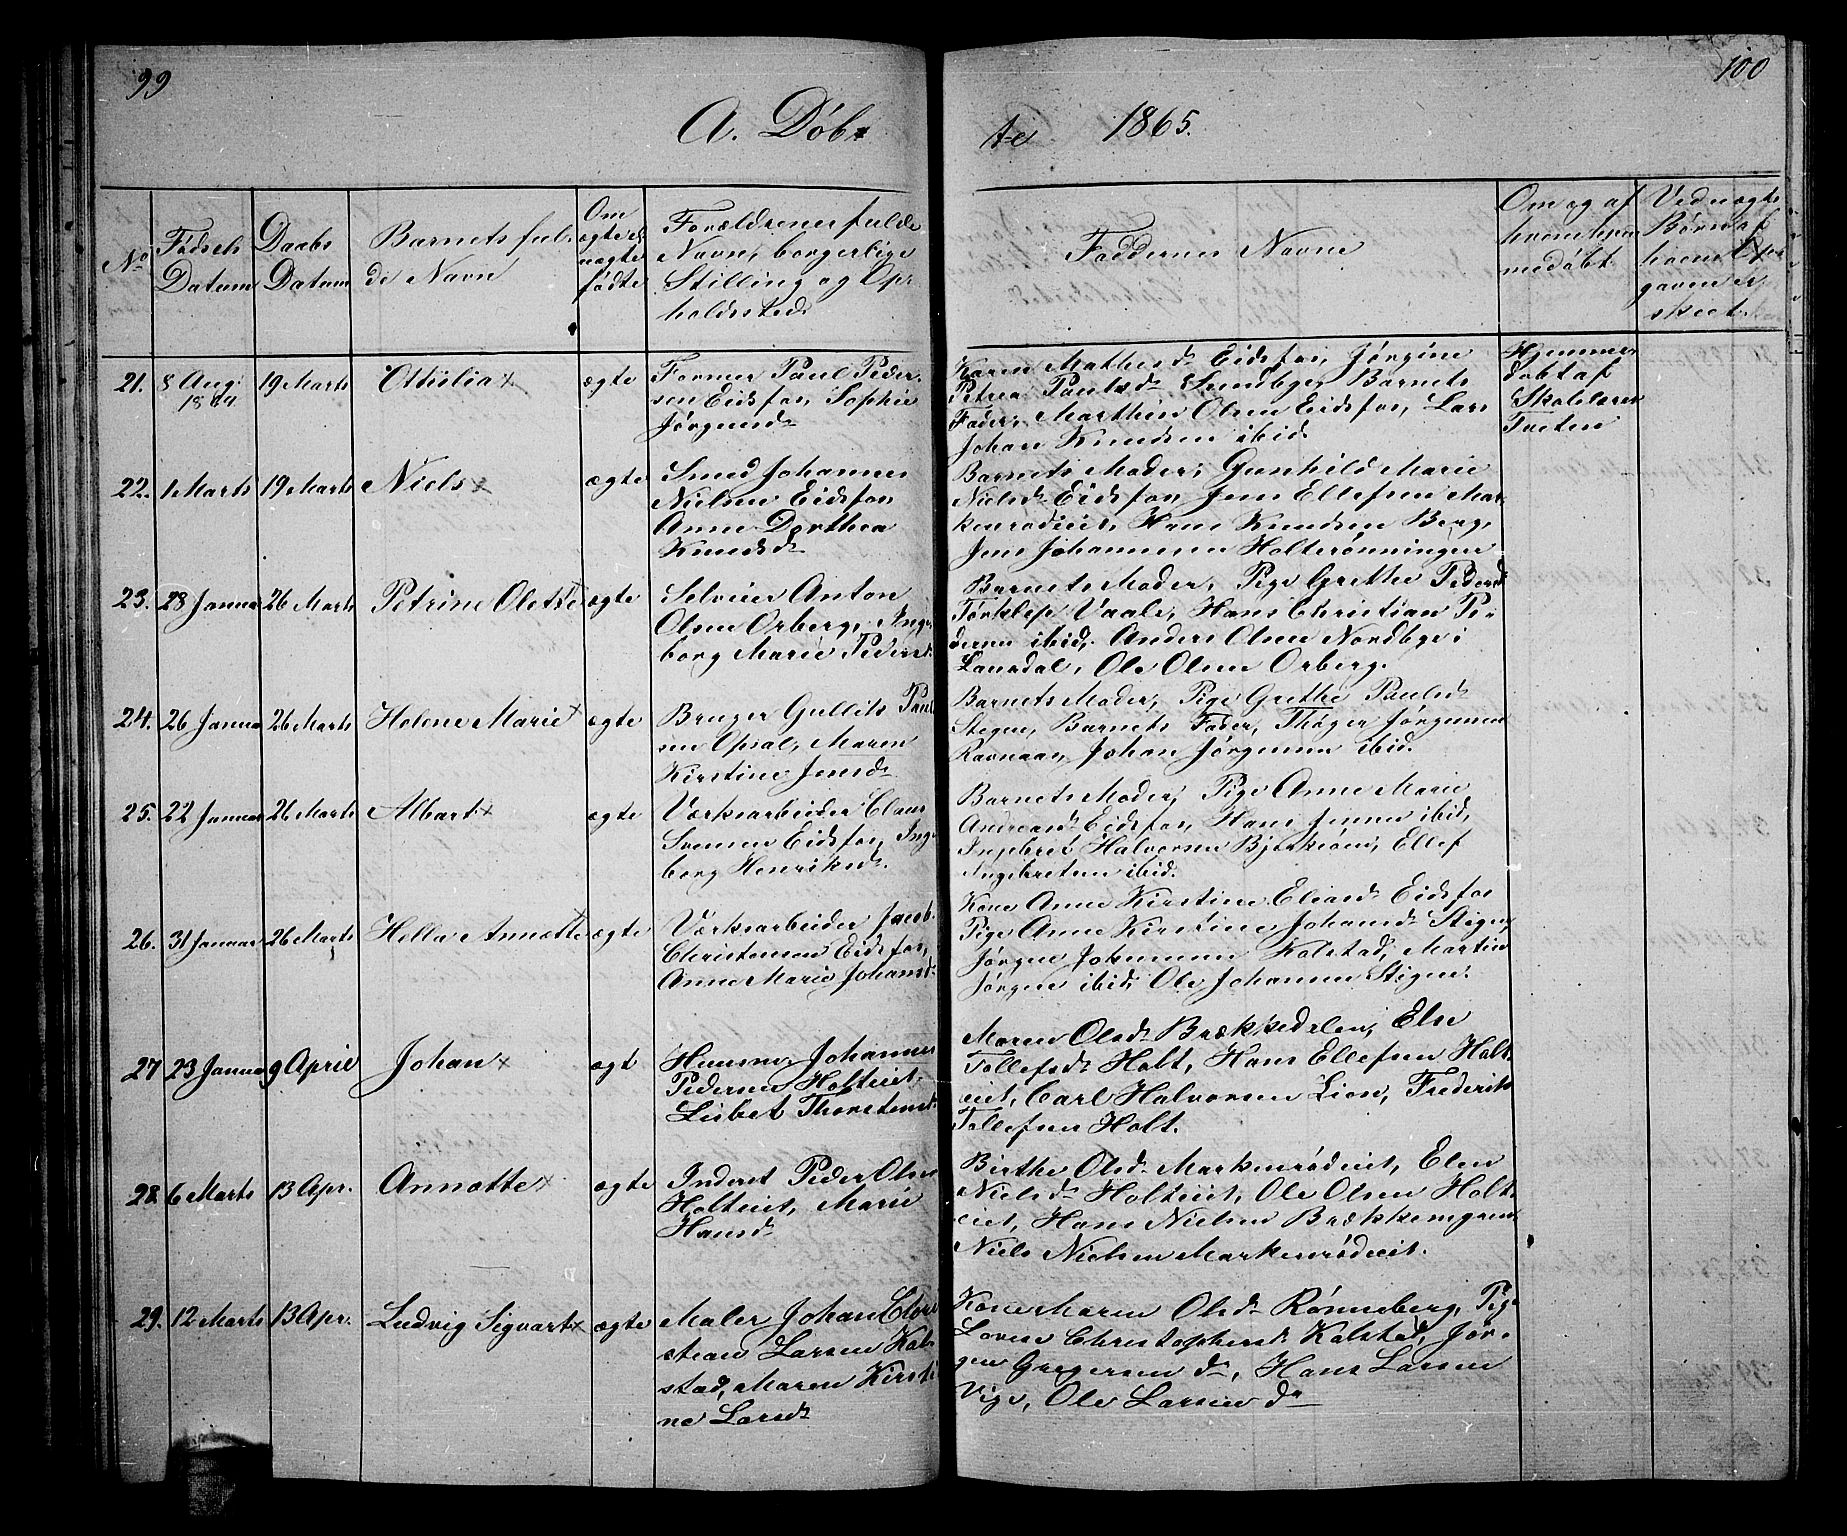 99
A. Døb
te 1865.
100
No
Fødsels Datum
Daabs Datum
Barnets ful-
de Navn
Om
ægte el
uægte
fødte
Forældrenes fulde
Navn, borgerlige
Stilling og Op-
holdssted
Faddernes Navne
Om og af
hvem hjem
medøbt
Ved uægte
Børn af
hvem Op
gaven er
skeet.
21. 8 Aug. 1864 19 Marts Othilia x ægte
Former Paul Peder-
sen Eidsfos, Sophie
Jørgensd.
Karen Mathesd. Eidsfos, Jørgine
Petrea Paulsd. Sundbye, Barnets
Fader, Marthin Olsen Eidsfos, Lars
Johan Knudsen ibid.
Hjemme-
døbt af
Skolelærer
Tveten
22. 1 Marts 19 Marts Niels x ægte
Smed Johannes
Nielsen Eidsfos,
Anne Dorthea
Knudsd.
Barnets Moder, Gunhild Marie
Nielsd. Eidsfos, Jens Ellefsen Mar-
kenrødeiet, Hans Knudsen Berg,
Jens Johannesen Holterønningen
23. 28 Januar 26 Marts Petrine Oletse ægte
Selveier Anton
Olsen Orberg, Inge-
borg Marie Pedersd.
Barnets Moder, Pige Grethe Pedersd.
Tørklep Vaale, Hans Christian Pe-
dersen ibid. Anders Olsen Nordbye i
Laurdal, Ole Olsen Orberg.
24. 26 Januar 26 Marts Helene Marie x ægte
Bruger Gullik Paul
sen Opsal, Maren
Kirstine Jensd.
Barnets Moder, Pige Grethe Paulsd.
Stegne, Barnets Fader, Thøger Jørgensen
Ravnaas, Johan Jørgensen ibid.
25. 22 Januar 26 Marts Albart x ægte
Værksarbeider Claus
Svensen Eidsfos, Inge-
borg Henriksd.
Barnets Moder, Pige Anne Marie
Andreasd. Eidsfos, Hans Jensen ibid,
Ingebret Halvorsen Bjerkøen, Ellef
Ingebretsen ibid.
26. 31 Januar 26 Marts Hella Annette x ægte
Værksarbeider Jacob
Christensen Eidsfos,
Anne Marie Johansd.
Kone Anne Kirstine Eliasd. Eidsfos
Pige Anne Kirstine Johansd. Stigne,
Jørgen Johannesen Kolstad, Martin
Jørgen ibid, Ole Johannesen Stigne.
27 23 Januar 9 April Johan x ægt
Huusm. Johannes
Pedersen Holteiet,
Lisbet Thorstensd.
Maren Olsd. Brækkedalen, Else
Tollefsd. Holt, Hans Ellefsen Holt
eiet, Carl Halvorsen Lien, Frederik
Tollefsen Holt.
28. 6 Marts 13 Apr. Annette x ægte
Inderst Peder Olsen
Holteiet, Marie
Hansd.
Birthe Olsd. Markenrødeiet, Elen
Nielsd. Holteiet, Ole Olsen Holt-
eiet, Hans Nielsen Brækkemgren,
Niels Nielsen Markenrødeiet.
29. 12 Marts 13 Apr. Ludvig Sigvart x ægte
Maler Johan Chri
stian Larsen Kol-
stad, Maren Kirsti
ne Larsd.
Kone Maren Olsd. Rønneberg, Pige
Lovise Christophersd. Kolstad, Jør-
gen Gregersen do, Hans Larsen
Vige, Ole Larsen do